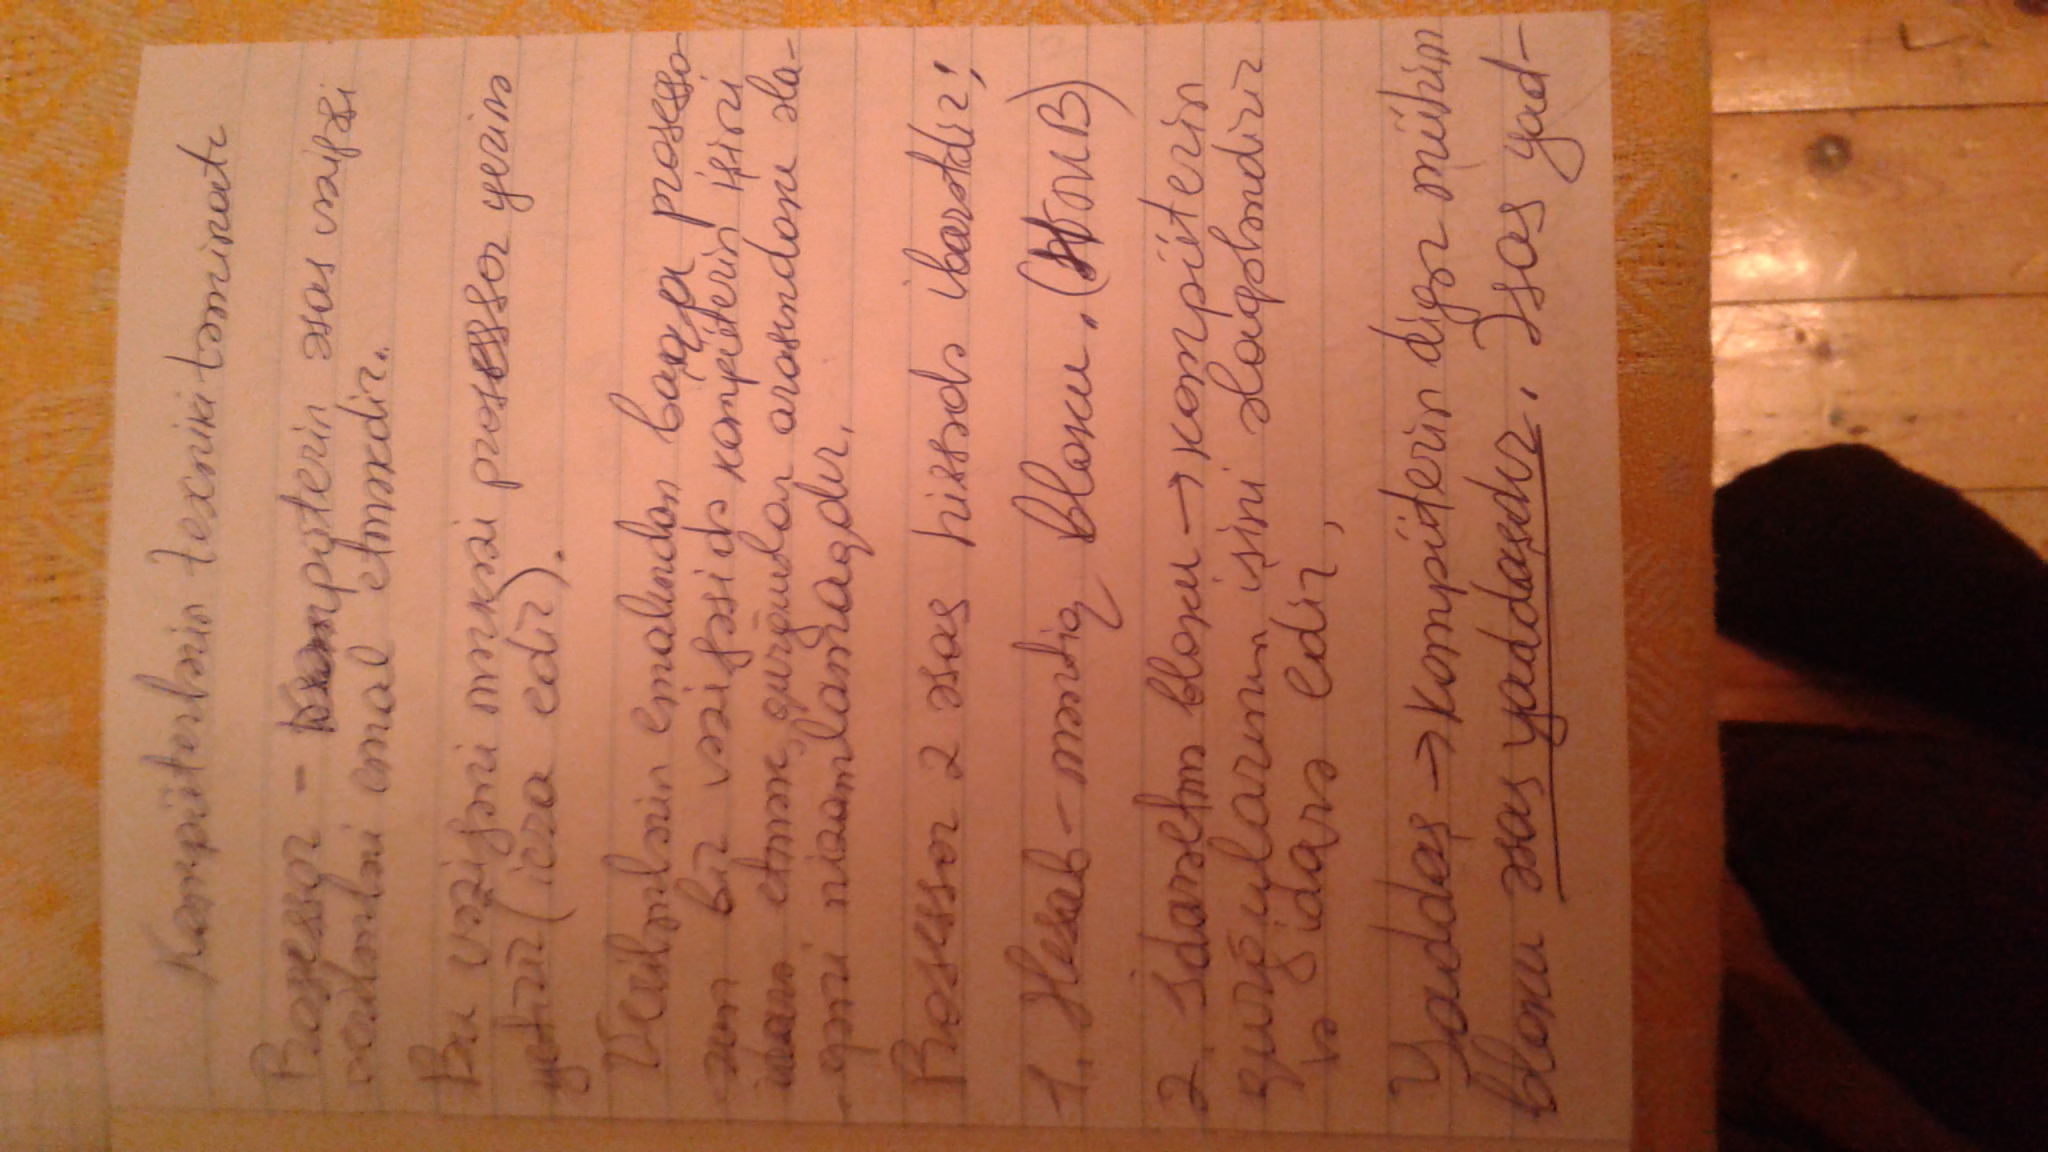 Kompüterlərin texniki təminatı
Prosessor - Kompüterin əsas vəzifəsi
verilənləri emal etməkdir.
Bu vəzifəni mərkəzi prosessor yerinə
yetirir (icra edir).
Verilənlərin emalından başqa prosesso-
run bir vəzifəsidə kompüterin işini
idarə etmək, qurğular arasındakı əla-
qəni nizamlamaqdır.
Prosessor 2 əsas hissədə ibarətdir:
1. Hesab-məntiq bloku. (HMB)
2. İdarəetmə bloku → kompüterin
qurğularının işini əlaqələndirir
və idarə edir,
Yaddaş → kompüterin digər mühüm
bloku əsas yaddaşdır. Əsas yad-